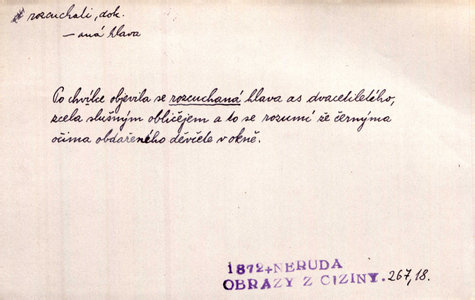 rozcuchati, dok.
—aná hlava
Po chvilce objevila se rozcuchaná hlava as dvacetiletého,
zcela slušným obličejem a to se rozumí že černýma
očima obdařeného děvčete v okně.
1872+NERUDA
OBRAZY Z CIZINY. 267,18.